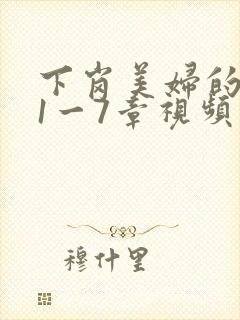 下岗美婦的
1一7章視頻
穆什里